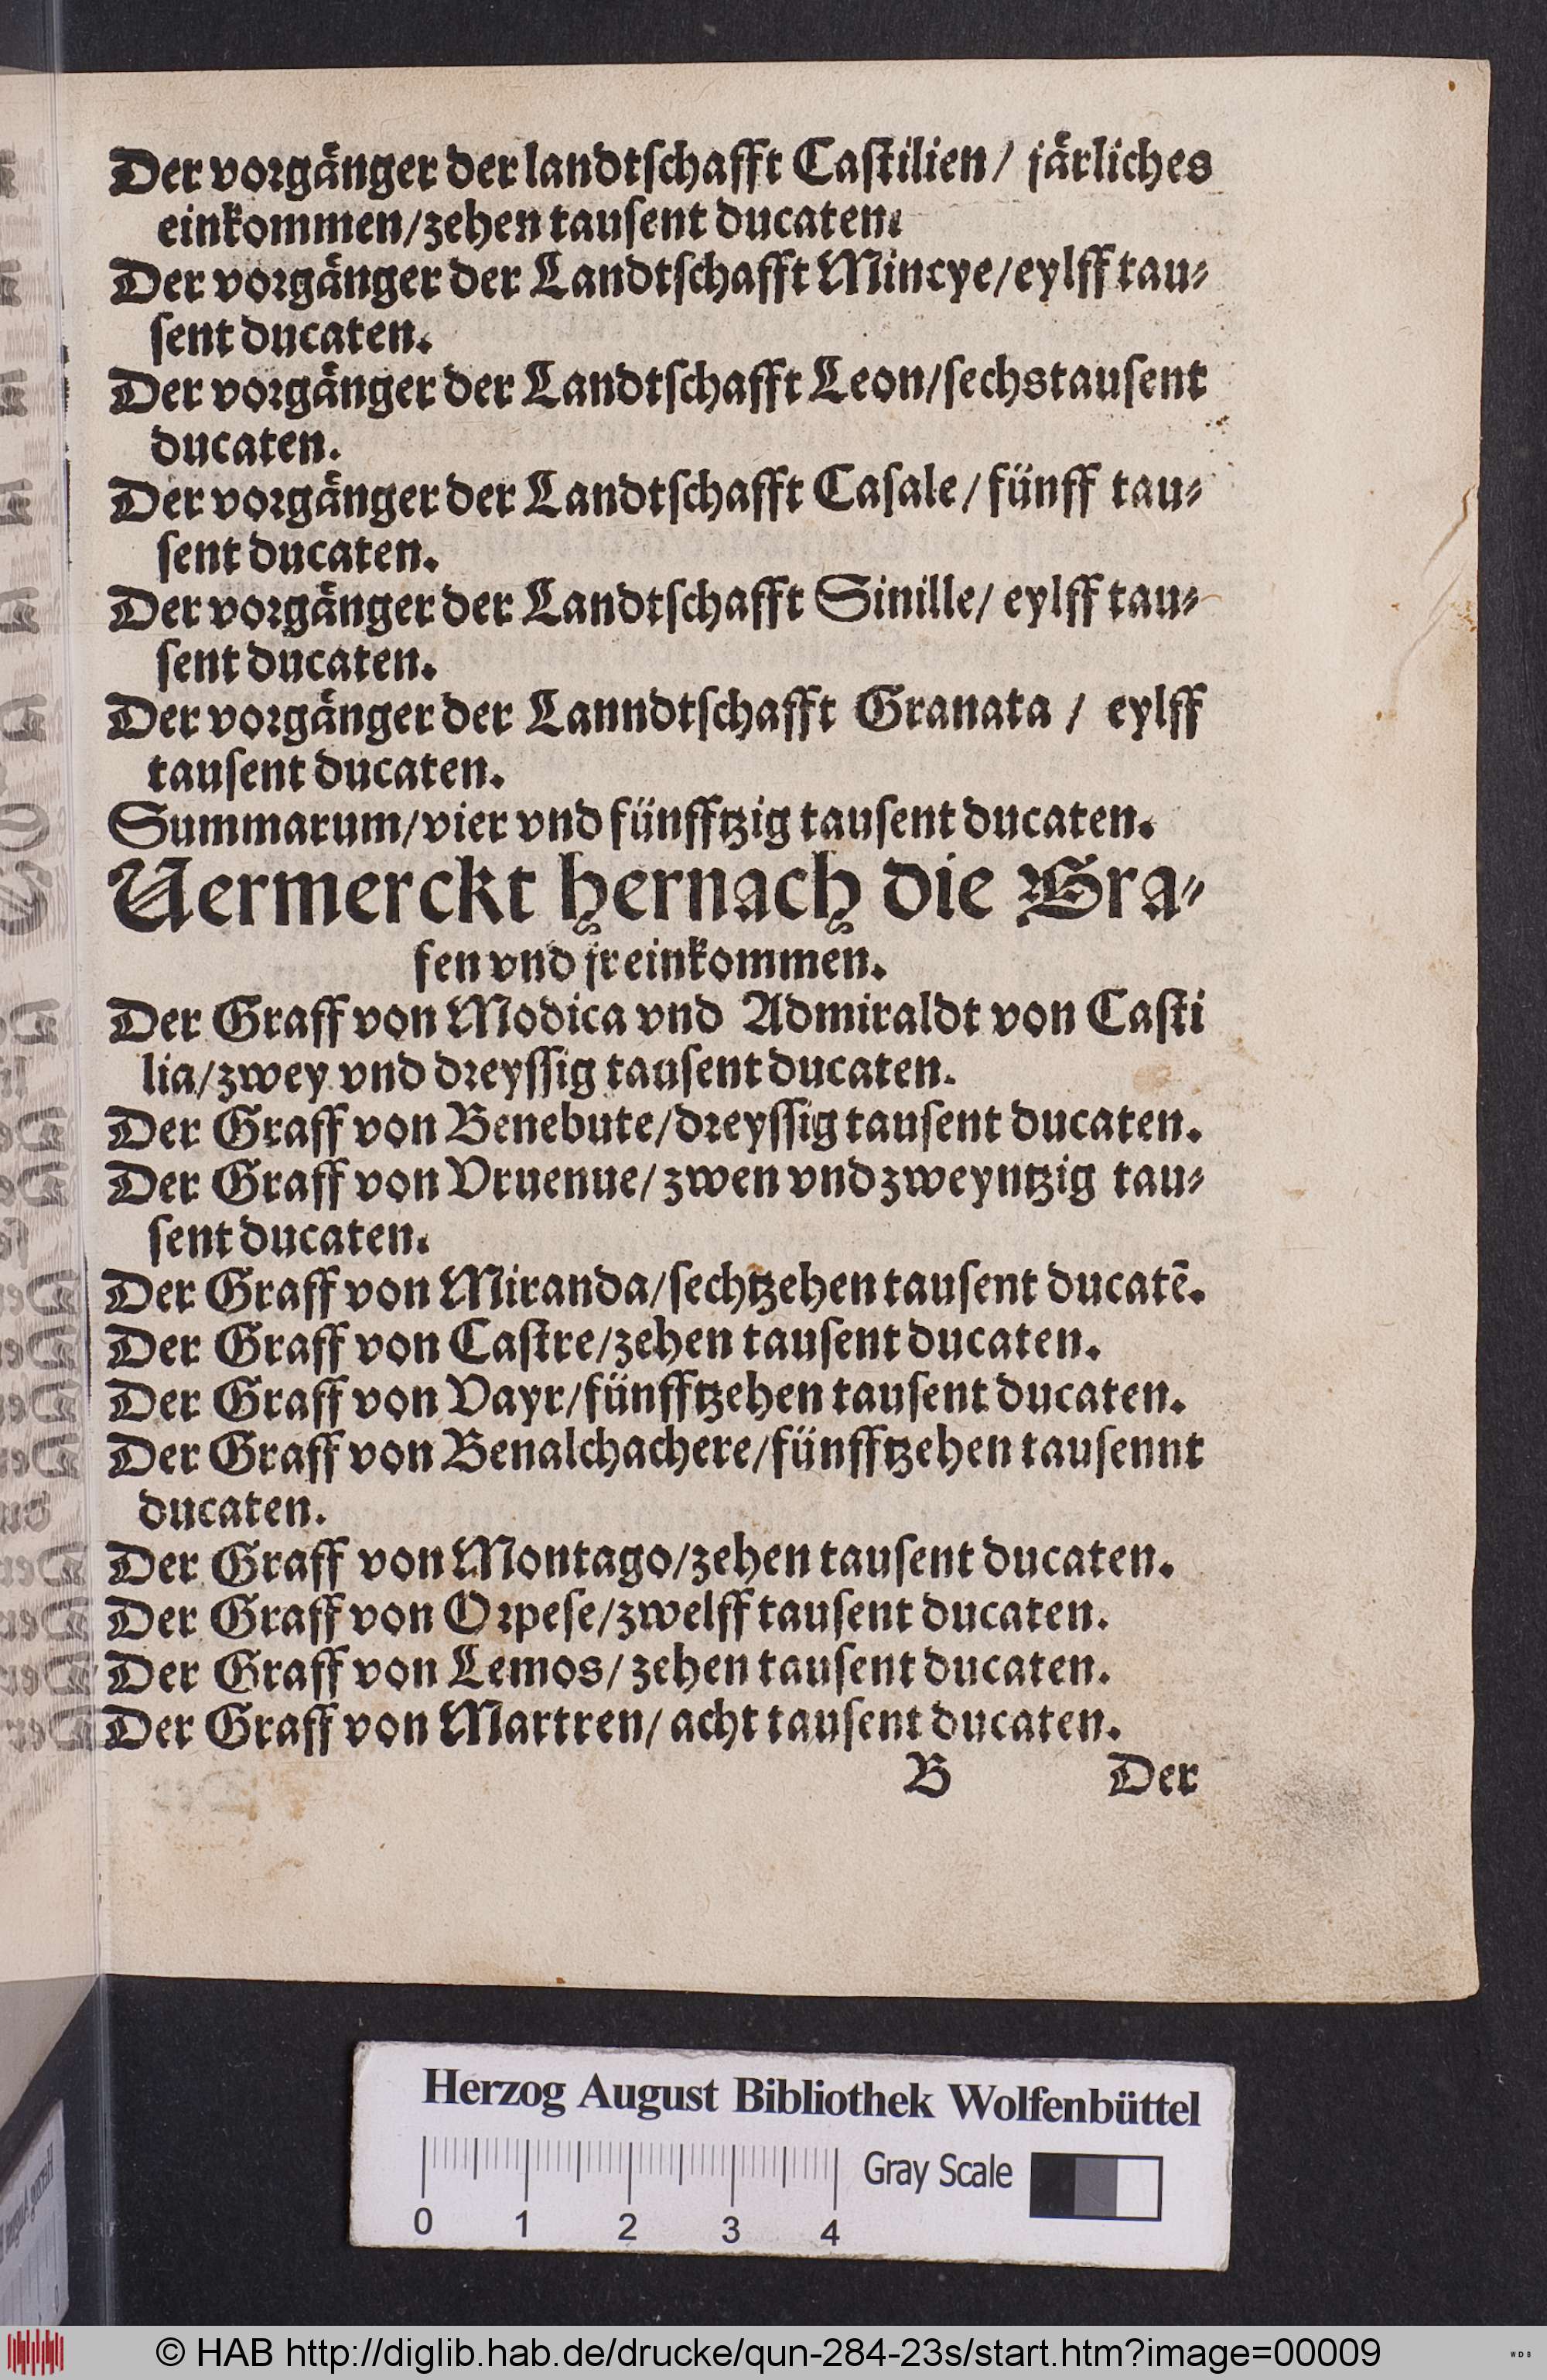 Der vorgänger der landtſchafft Caſtilien/ järliches
einkommen/zehen tauſent ducaten.
Der vorgänger der Landtſchafft Mincye/eylff tau⸗
ſent ducaten.
Der vorgänger der Landtſchafft Leon/ſechstauſent
ducaten.
Der vorgänger der Landtſchafft Caſale/ fünff tau⸗
ſent ducaten.
Der vorgänger der Landtſchafft Sinille/ eylff tau⸗
ſent ducaten.
Der vorgänger der Lanndtſchafft Granata / eylff
tauſent ducaten.
Summarum/vier vnd fünfftzig tauſent ducaten.
Vermerckt hernach die Gra⸗
fen vnd jr einkommen.
Der Graff von Modica vnd Admiraldt von Caſti
lia/zwey vnd dreyſſig tauſent ducaten.
Der Graff von Benebute/dreyſſig tauſent ducaten.
Der Graff von Vruenue/ zwen vnd zweyntzig tau⸗
ſent ducaten.
Der Graff von Miranda/ſechtzehen tauſent ducatē.
Der Graff von Caſtre/zehen tauſent ducaten.
Der Graff von Vayr/fünfftzehen tauſent ducaten.
Der Graff von Benalchachere/fünfftzehen tauſennt
ducaten.
Der Graff von Montago/zehen tauſent ducaten.
Der Graff von Orpeſe/zwelff tauſent ducaten.
Der Graff von Lemos/ zehen tauſent ducaten.
Der Graff von Martren/ acht tauſent ducaten.
B Der
Herzog August Bibliothek Wolfenbüttel
Gray Scale
0 1 2 3 4
© HAB http://diglib.hab.de/drucke/qun-284-23s/start.htm?image=00009
WDB